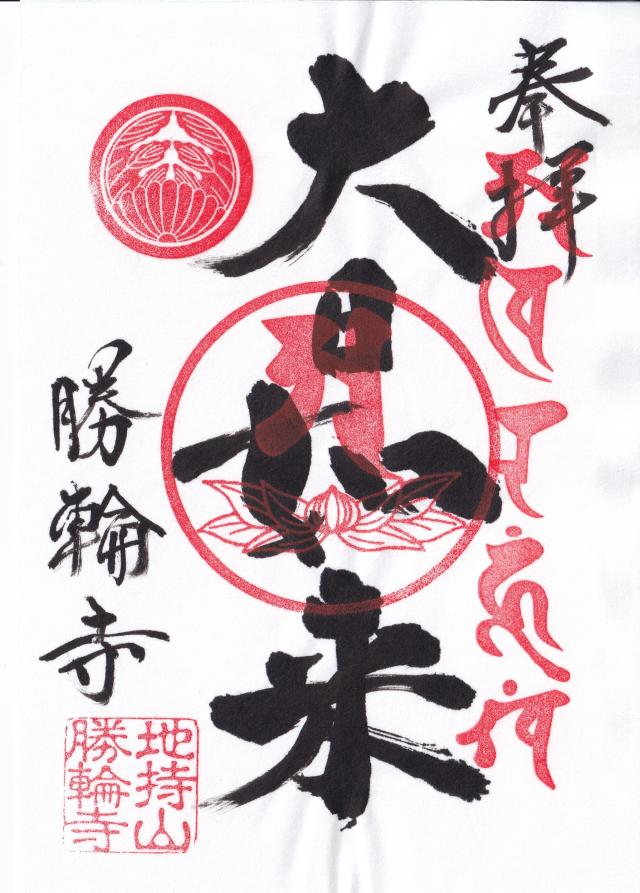 奉拝
大日如来
勝輪寺
地持山
勝輪寺